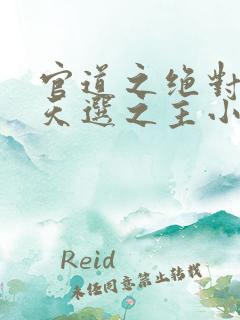 官道之绝对
天选之主小
Reid
未经同意禁止转载